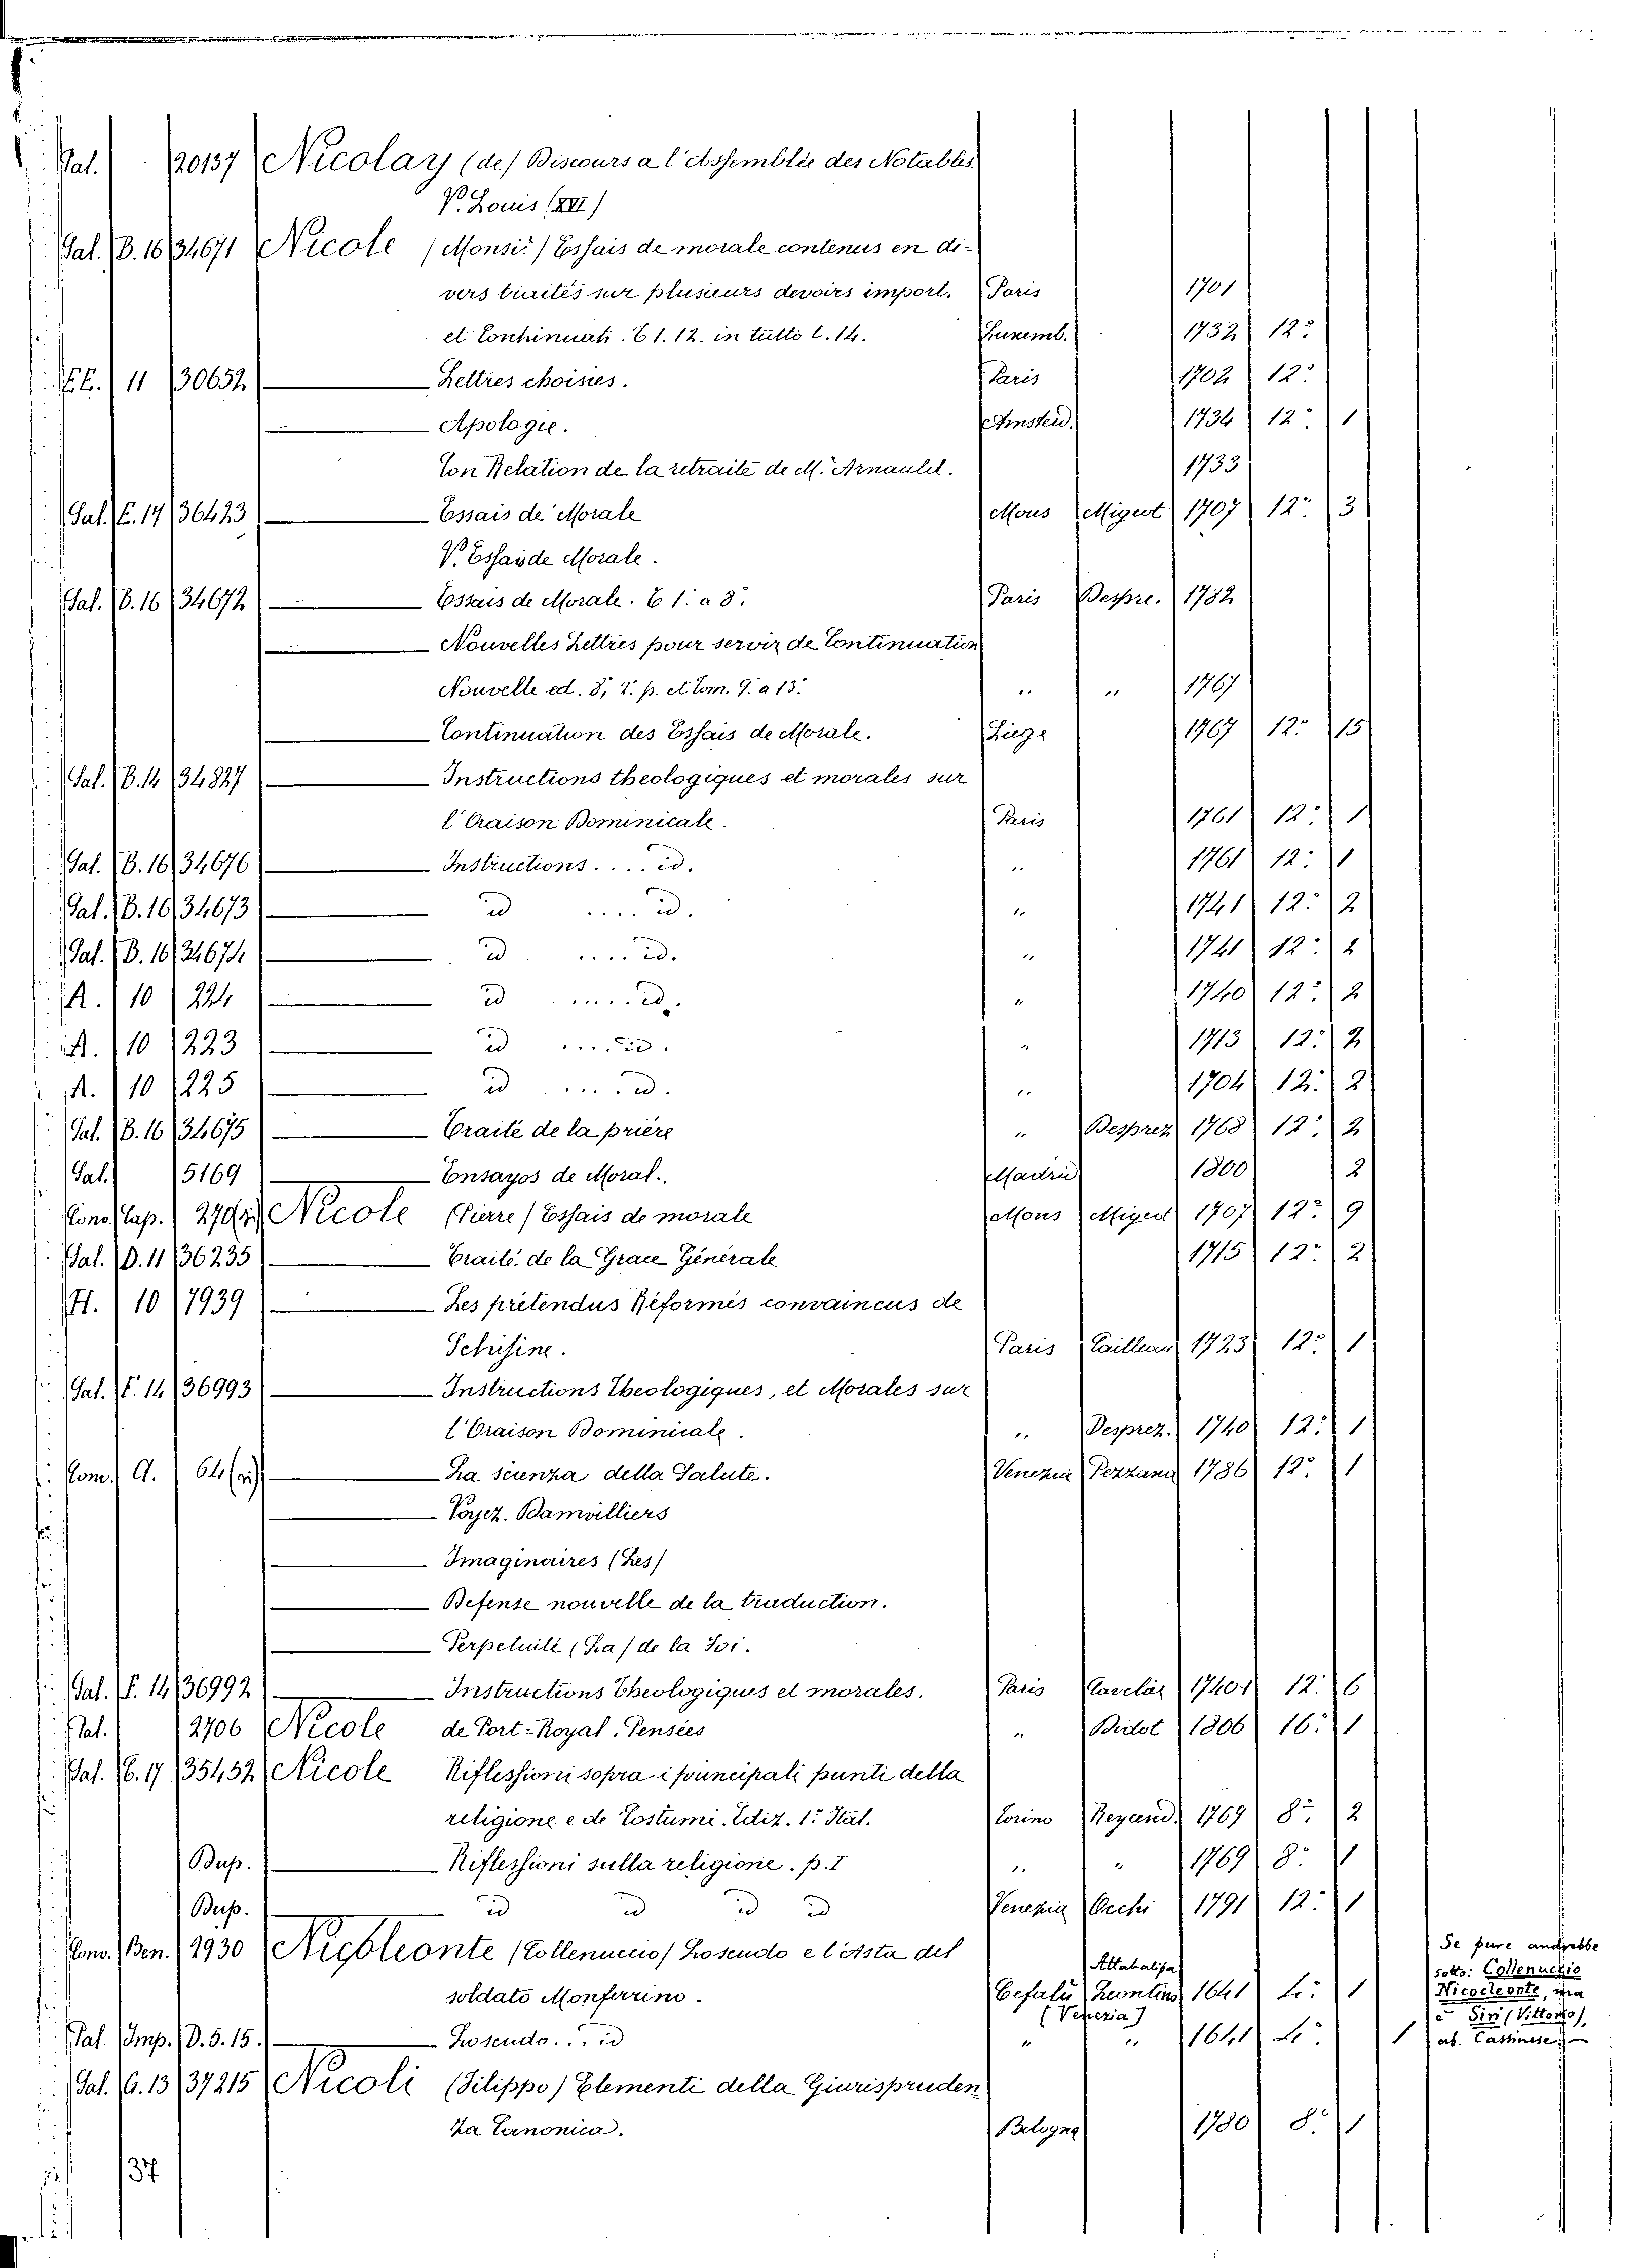 Pal. 20137 Nicolay (de) Discours a l'Assemblée des Notables.
V. Louis (XVI)
Pal. B. 16 34671 Nicole (Monsir.) Essais de morale contenus en di-
vers traités sur plusieurs devoirs import. Paris 1701
et Continuati. T 1. 12. in tutto t. 14. Luxemb. 1732 12°
11 30652 Lettres choisies. Paris 1702 12°
Apologie. Amsterd. 1734 12° 1
Con Relation de la retraite de M. Arnauld. 1733
Pal. E. 17 36423 Essais de Morale Mons Migeot 1707 12° 3
V. Essais de Morale.
Pal. B. 16 34672 Essais de Morale. T 1. a 8. Paris Despre. 1782
Nouvelles Lettres pour servir de Continuation
Nouvelle ed. 8, 2. p. et Tom. 9. a 13. " " 1767
Continuation des Essais de Morale. Liege 1767 12° 15
Pal. B. 14 34827 Instructions theologiques et morales sur
l'Oraison Dominicale. Paris 1761 12° 1
Pal. B. 16 34676 Instructions.... id. " 1761 12° 1
Pal. B. 16 34673 id .... id. " 1741 12° 2
Pal. B. 16 34674 id ..... id. " 1741 12° 2
A. 10 224 id ...... id. " 1740 12° 2
A. 10 223 id ..... id. " 1713 12° 2
A. 10 225 id .... id. " 1704 12° 2
Pal. B. 16 34675 Traité de la prière " Desprez 1768 12° 2
Pal. 5169 Ensayos de Moral.. Madrid 1800 2
Cons. Cap. Nicole (Pierre) Essais de morale Mons Migeot 1707 12° 9
Pal. D. 11 36235 Traité de la Grace Générale 1715 12° 2
H. 10 7939 Les prétendus Réformés convaincus de
Schisine. Paris 1723 12° 1
Pal. F. 14 36993 Instructions Theologiques, et Morales sur
l'Oraison Dominicale. " Desprez. 1740 12° 1
Com. A. 64 La scienza della Salute. Venezia Pezzana 1786 12° 1
Voyez. Damvilliers
Imaginaires (Les)
Defense nouvelle de la traduction.
Perpetuité (La) de la Foi.
Pal. F. 14 36992 Instructions Theologiques et morales. Paris Cavelier 1740 12° 6
Pal. 2706 Nicole de Port-Royal. Pensées " Didot 1806 16° 1
Pal. C. 17 35452 Nicole Riflessioni sopra i principali punti della
religione e de Costumi. Ediz. 1a Ital. Torino Reycend. 1769 8° 2
Dup. Riflessioni sulla religione. p. I " " 1769 8° 1
Dup. id id id id Venezia Occhi 1791 12° 1
Cons. Ben. 2930 Nicoleonte (Collenuccio) Lo scudo e l'Asta del
soldato Monferrino. Cefalù Leontino 1641 4° 1
Attabalipa
(Venezia)
Pal. Imp. D. 5. 15. Lo scudo... id " " 1641 4° 1
Se pure andrebbe
sotto: Collenuccio
Nicocleonte, ma
è Siri (Vittorio),
ab. Cassinese.
Pal. G. 13 37215 Nicoli (Filippo) Elementi della Giurispruden
za Canonica. Bologna 1780 8° 1
37